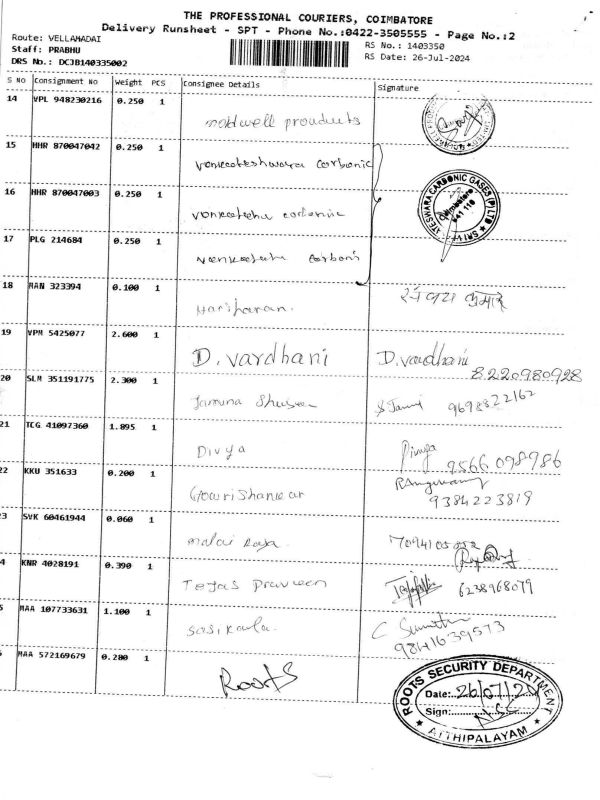 THE PROFESSIONAL COURIERS, COIMBATORE
Delivery Runsheet - SPT - Phone No.:0422-3505555 - Page No.:2
Route: VELLAHADAI
Staff: PRABHU
DRS No.: DCJB140335002
RS No.: 1403350
RS Date: 26-Jul-2024
S No Consignment No Weight PCS Consignee Details Signature
14 VPL 948230216 0.250 1
15 HHR 870047042 0.250 1 carbonic
16 HHR 870047003 0.250 1
17 PLG 214684 0.250 1
18 MAN 323394 0.100 1 Hariharan.
19 VPM 5425077 2.600 1 D. vardhani D. vardhani
8220980928
20 SLM 351191775 2.300 1 Jamuna 9698822162
21 TCG 41097360 1.895 1 Divya Divya
9566 098986
22 KKU 351633 0.200 1 Gowrishankar
9384223819
3 SVK 60461944 0.060 1 malai Raja
4 KNR 4028191 0.390 1 Tejas praveen 6238968079
5 MAA 107733631 1.100 1 Sasikala.
9841639573
6 MAA 572169679 0.280 1 Roots
ATESWARA CARBONIC GASES (P) LTD ★ SRI V
Coimbatore
641 110
ROOTS SECURITY DEPARTMENT
Date: 26/07/24
Sign:
ATTHIPALAYAM